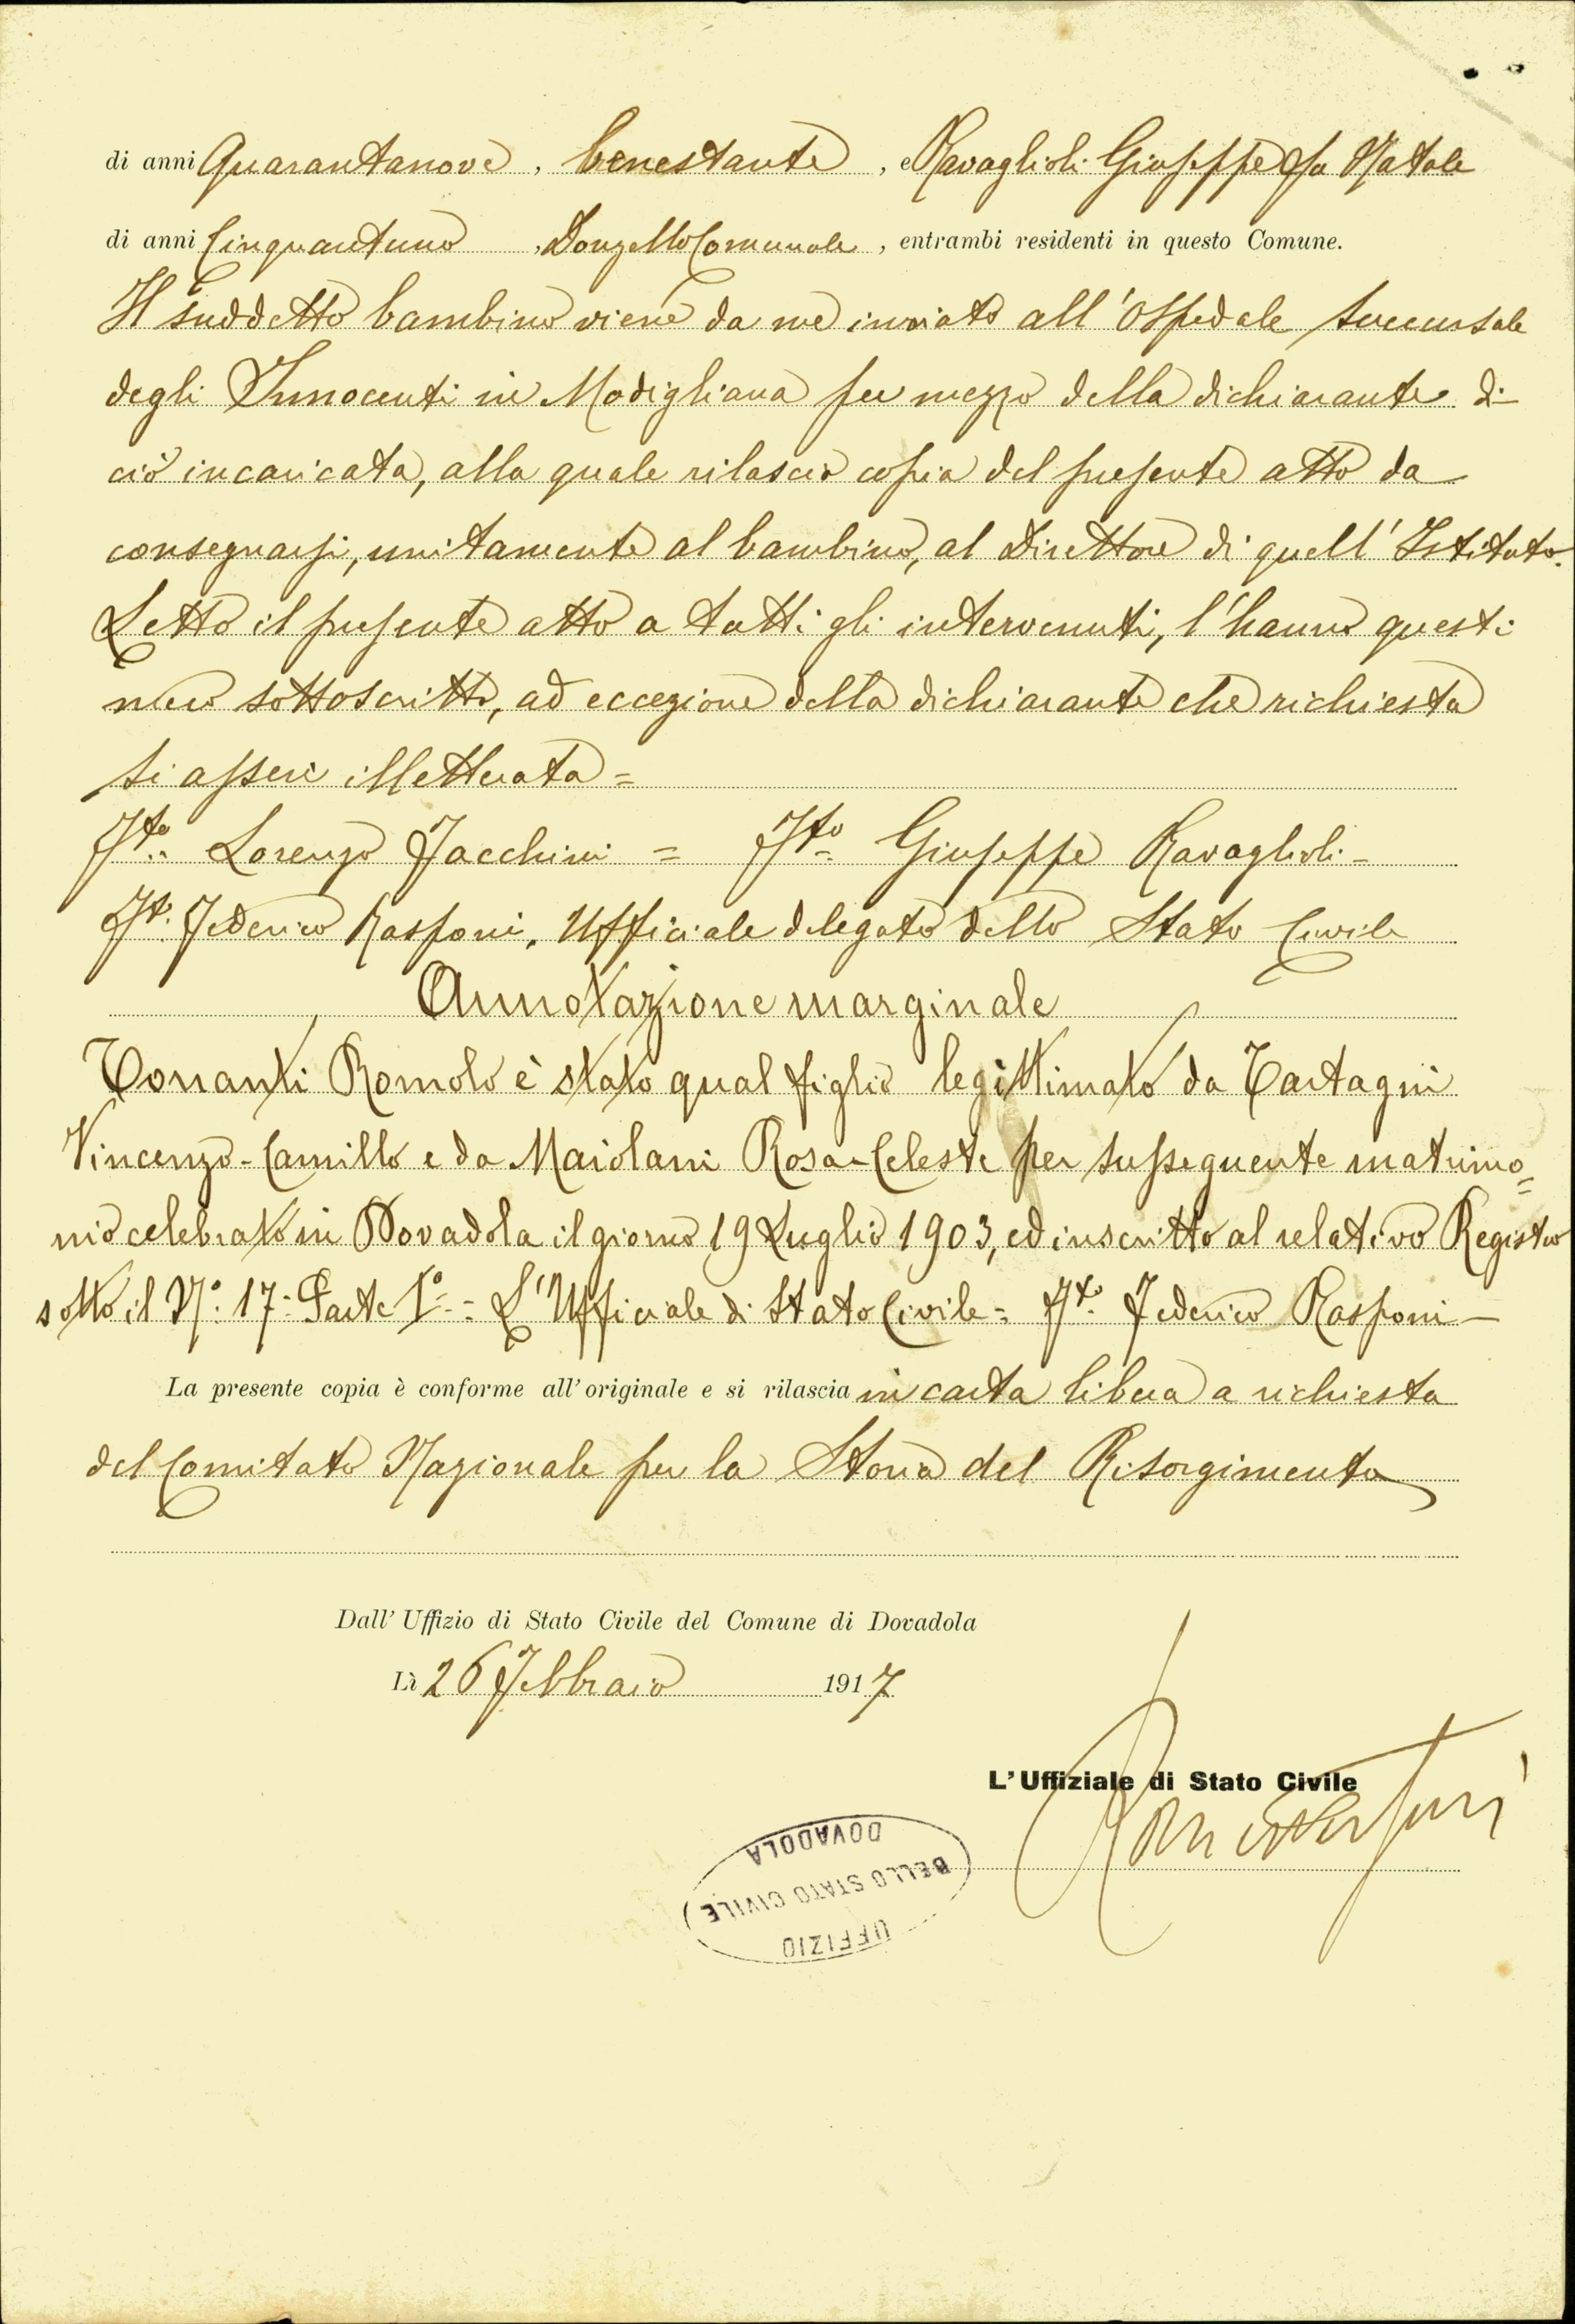 di anni Quarantanove, benestante, e Ravaglioli Giuseppe fu Natale
di anni Cinquantuno, Donzello Comunale, entrambi residenti in questo Comune.
Il suddetto bambino viene da me inviato all'Ospedale succursale
degli Innocenti in Modigliana per mezzo della dichiarante di
ciò incaricata, alla quale rilascio copia del presente atto da
consegnarsi, unitamente al bambino, al Direttore di quell'Istituto.
Letto il presente atto a tutti gli intervenuti, l'hanno questi
meco sottoscritto, ad eccezione della dichiarante che richiesta
si asserì illetterata =
Fto. Lorenzo Facchini = Fto. Giuseppe Ravaglioli -
Fto. Federico Rasponi, Ufficiale delegato dello Stato Civile
Annotazione marginale
Tonanti Romolo è stato qual figlio legittimato da Tartagni
Vincenzo-Camillo e da Maiolani Rosa-Celeste per susseguente matrimo=
nio celebrato in Dovadola il giorno 19 Luglio 1903, ed inscritto al relativo Registro
sotto il No. 17 - Parte 1o. - L'Ufficiale di Stato Civile = Fto. Federico Rasponi -
La presente copia è conforme all'originale e si rilascia in carta libera a richiesta
del Comitato Nazionale per la Storia del Risorgimento
Dall' Uffizio di Stato Civile del Comune di Dovadola
Lì 26 Febbraio 1917
L'Uffiziale di Stato Civile
UFFIZIO
DELLO STATO CIVILE
DOVADOLA